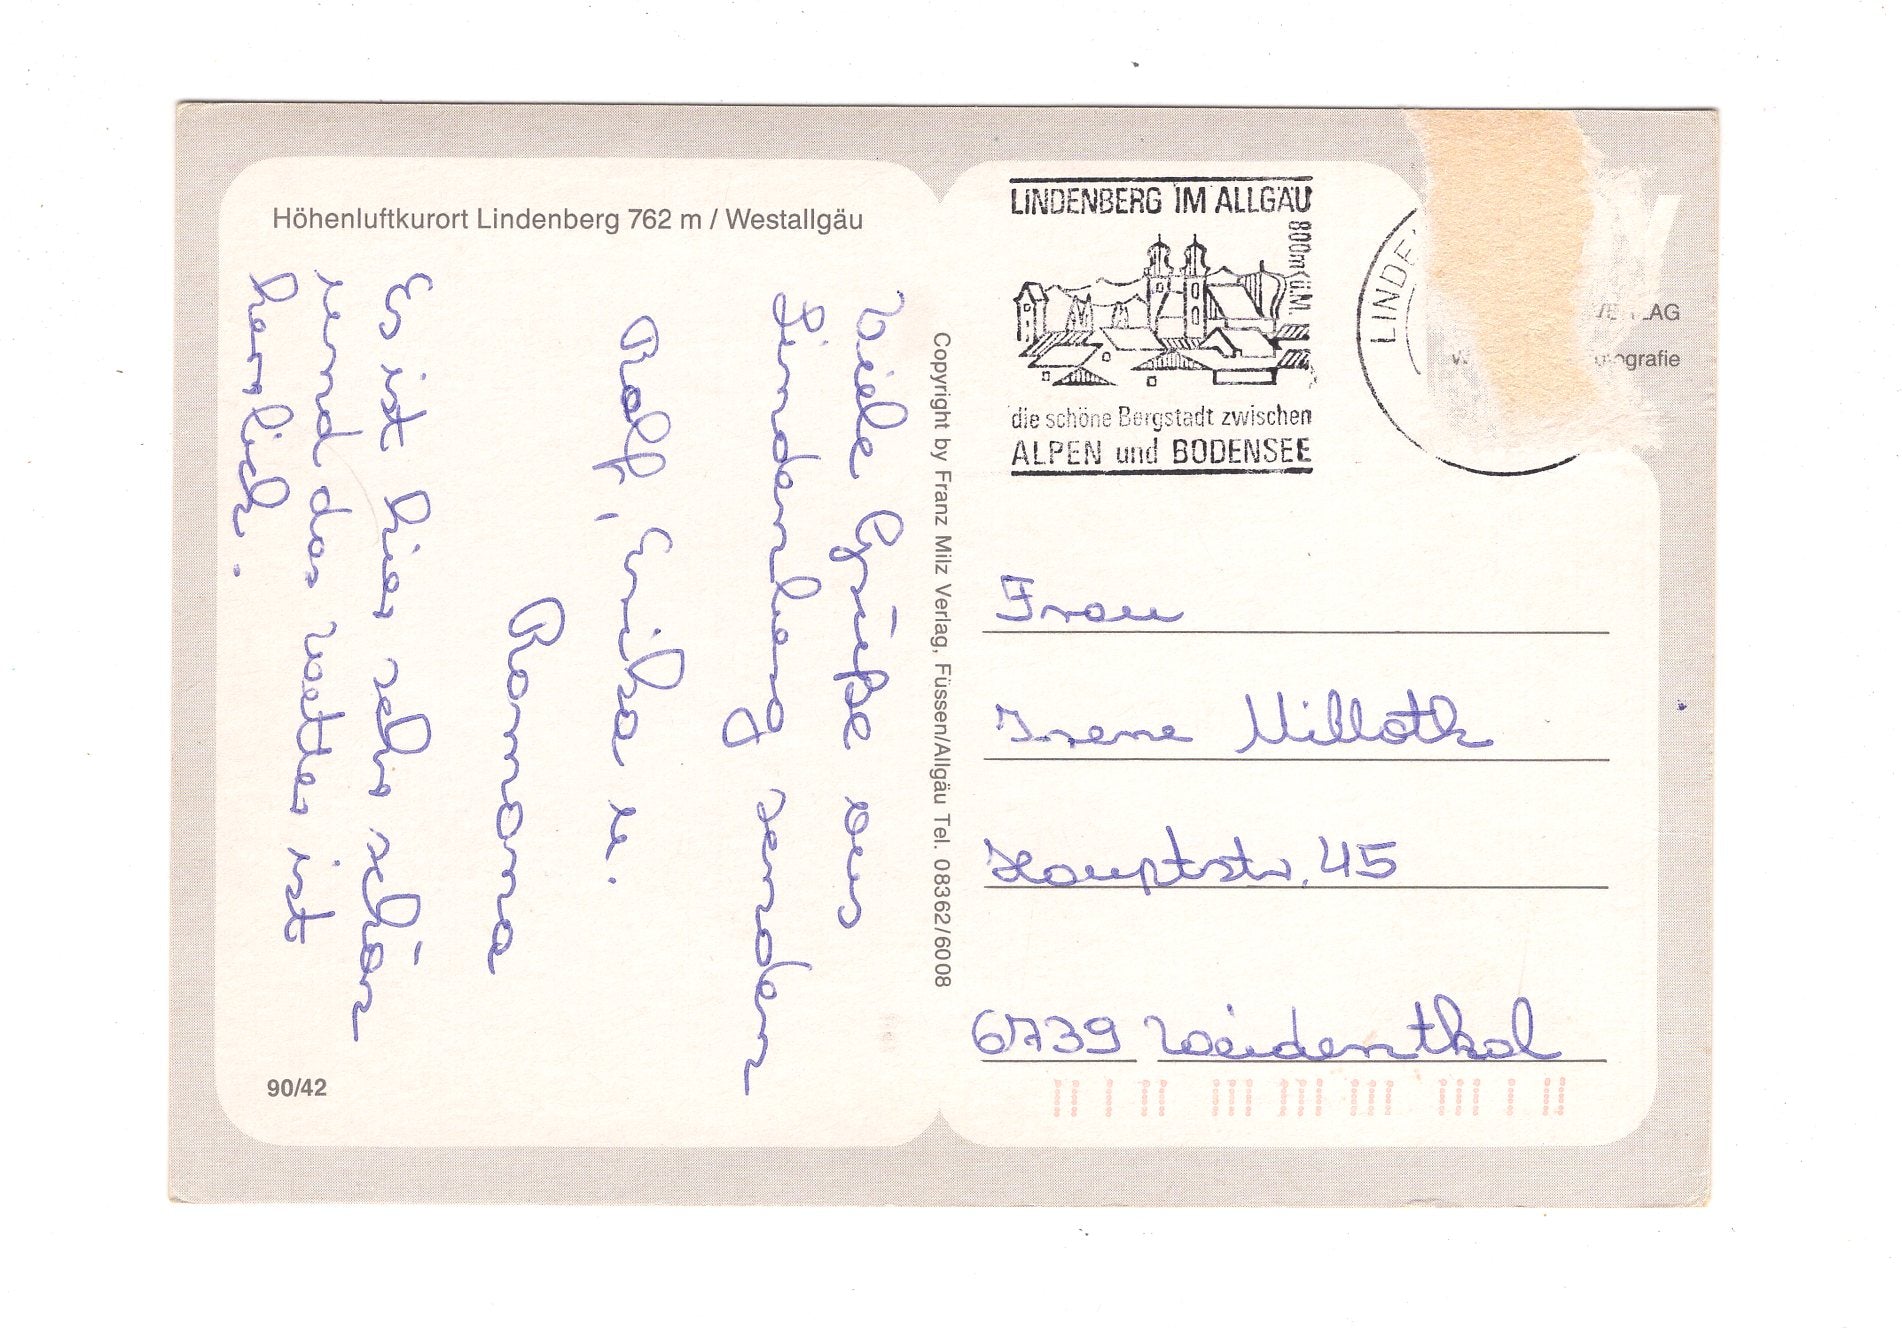 Höhenluftkurort Lindenberg 762 m / Westallgäu
Viele Grüße aus
Lindenberg senden
Rolf, Erika u.
Ramona
Es ist hier sehr schön
und das Wetter ist
herrlich.
90/42
Copyright by Franz Milz Verlag, Füssen/Allgäu Tel. 08362/6008
LINDENBERG IM ALLGÄU
800m ü.M.
die schöne Bergstadt zwischen
ALPEN und BODENSEE
LINDE
Frau
Irene Milloth
Hauptstr. 45
6739 Weidenthal